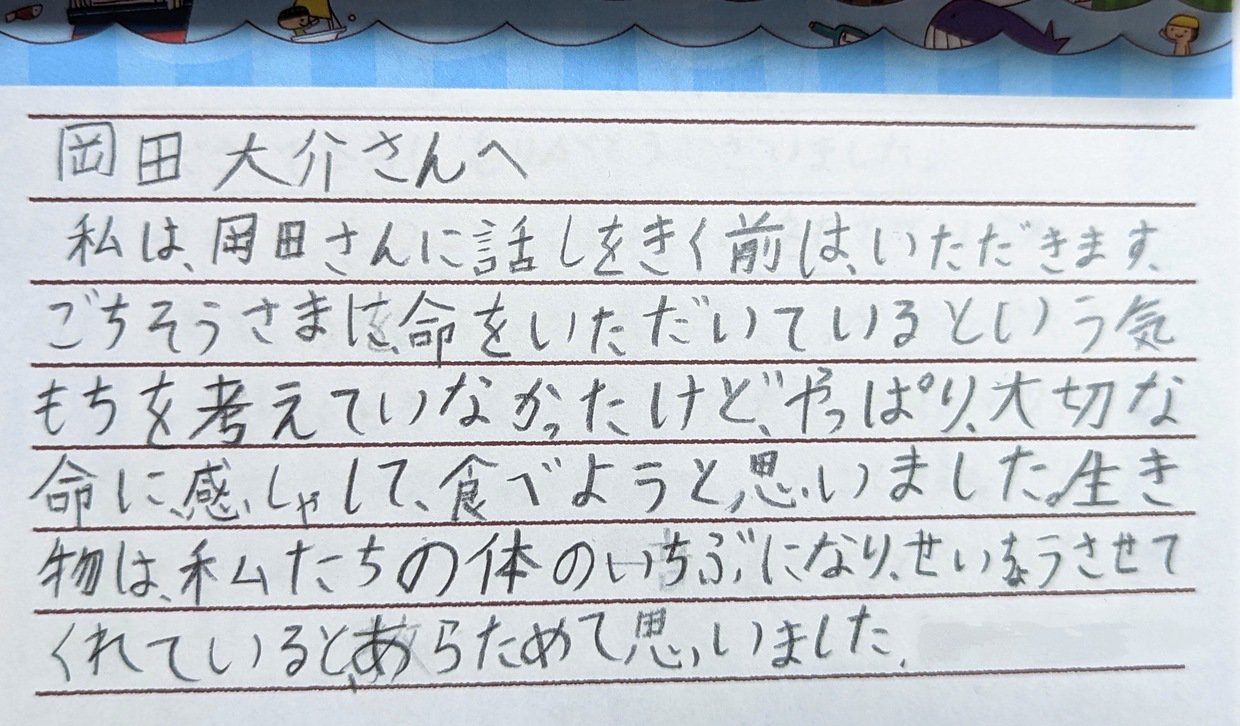 岡田大介さんへ
私は、岡田さんに話しをきく前は、いただきます、
ごちそうさまは、命をいただいているという気
もちを考えていなかったけど、やっぱり、大切な
命に、感しゃして、食べようと、思いました。生き
物は、私たちの体のいちぶになり、せいちょうさせて
くれていると、あらためて思いました。